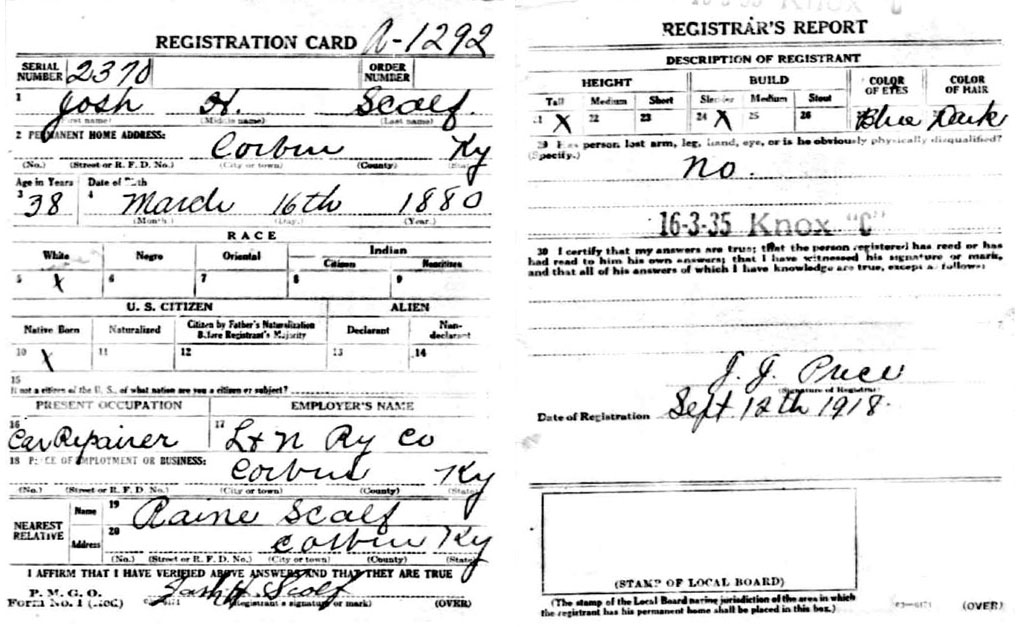 REGISTRATION CARD A-1292
SERIAL NUMBER 2370 ORDER NUMBER
1 Josh H. Scalf.
(First name) (Middle name) (Last name)
2 PERMANENT HOME ADDRESS:
Corbin Ky
(No.) (Street or R. F. D. No.) (City or town) (County) (State)
Age in Years Date of Birth
3 38 4 March 16th 1880
(Month.) (Day.) (Year.)
RACE
White Negro Oriental Indian
Citizen Noncitizen
5 X 6 7 8 9
U. S. CITIZEN ALIEN
Native Born Naturalized Citizen by Father's Naturalization Before Registrant's Majority Declarant Non-declarant
10 X 11 12 13 14
15
If not a citizen of the U. S., of what nation are you a citizen or subject?
PRESENT OCCUPATION EMPLOYER'S NAME
16 Car Repairer 17 L & N Ry Co
18 PLACE OF EMPLOYMENT OR BUSINESS:
Corbin Ky
(No.) (Street or R. F. D. No.) (City or town) (County) (State)
NEAREST RELATIVE Name 19 Raine Scalf
Address 20 Corbin Ky
(No.) (Street or R. F. D. No.) (City or town) (County) (State)
I AFFIRM THAT I HAVE VERIFIED ABOVE ANSWERS AND THAT THEY ARE TRUE
P. M. G. O.
Form No. 1 (Red) Josh H. Scalf
(Registrant's signature or mark) (OVER)
REGISTRAR'S REPORT
DESCRIPTION OF REGISTRANT
HEIGHT BUILD COLOR OF EYES COLOR OF HAIR
Tall Medium Short Slender Medium Stout
21 X 22 23 24 X 25 26 Blue Dark
29 Has person lost arm, leg, hand, eye, or is he obviously physically disqualified?
(Specify.) no.
16-3-35 Knox "C"
30 I certify that my answers are true; that the person registered has read or has
had read to him his own answers; that I have witnessed his signature or mark,
and that all of his answers of which I have knowledge are true, except as follows:
J. J. Price
(Signature of Registrar)
Date of Registration Sept 12th 1918.
(STAMP OF LOCAL BOARD)
(The stamp of the Local Board having jurisdiction of the area in which
the registrant has his permanent home shall be placed in this box.)
(OVER)